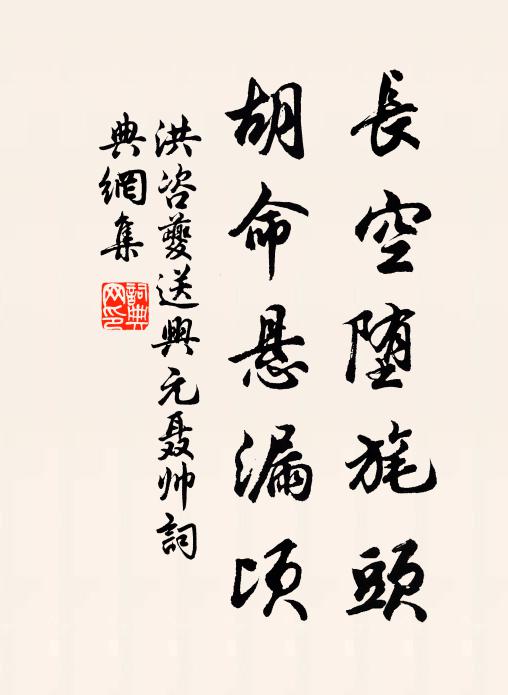 長空墮旄頭
胡命懸漏頃
洪咨夔送興元聂帅詞
典網集
詞典网印